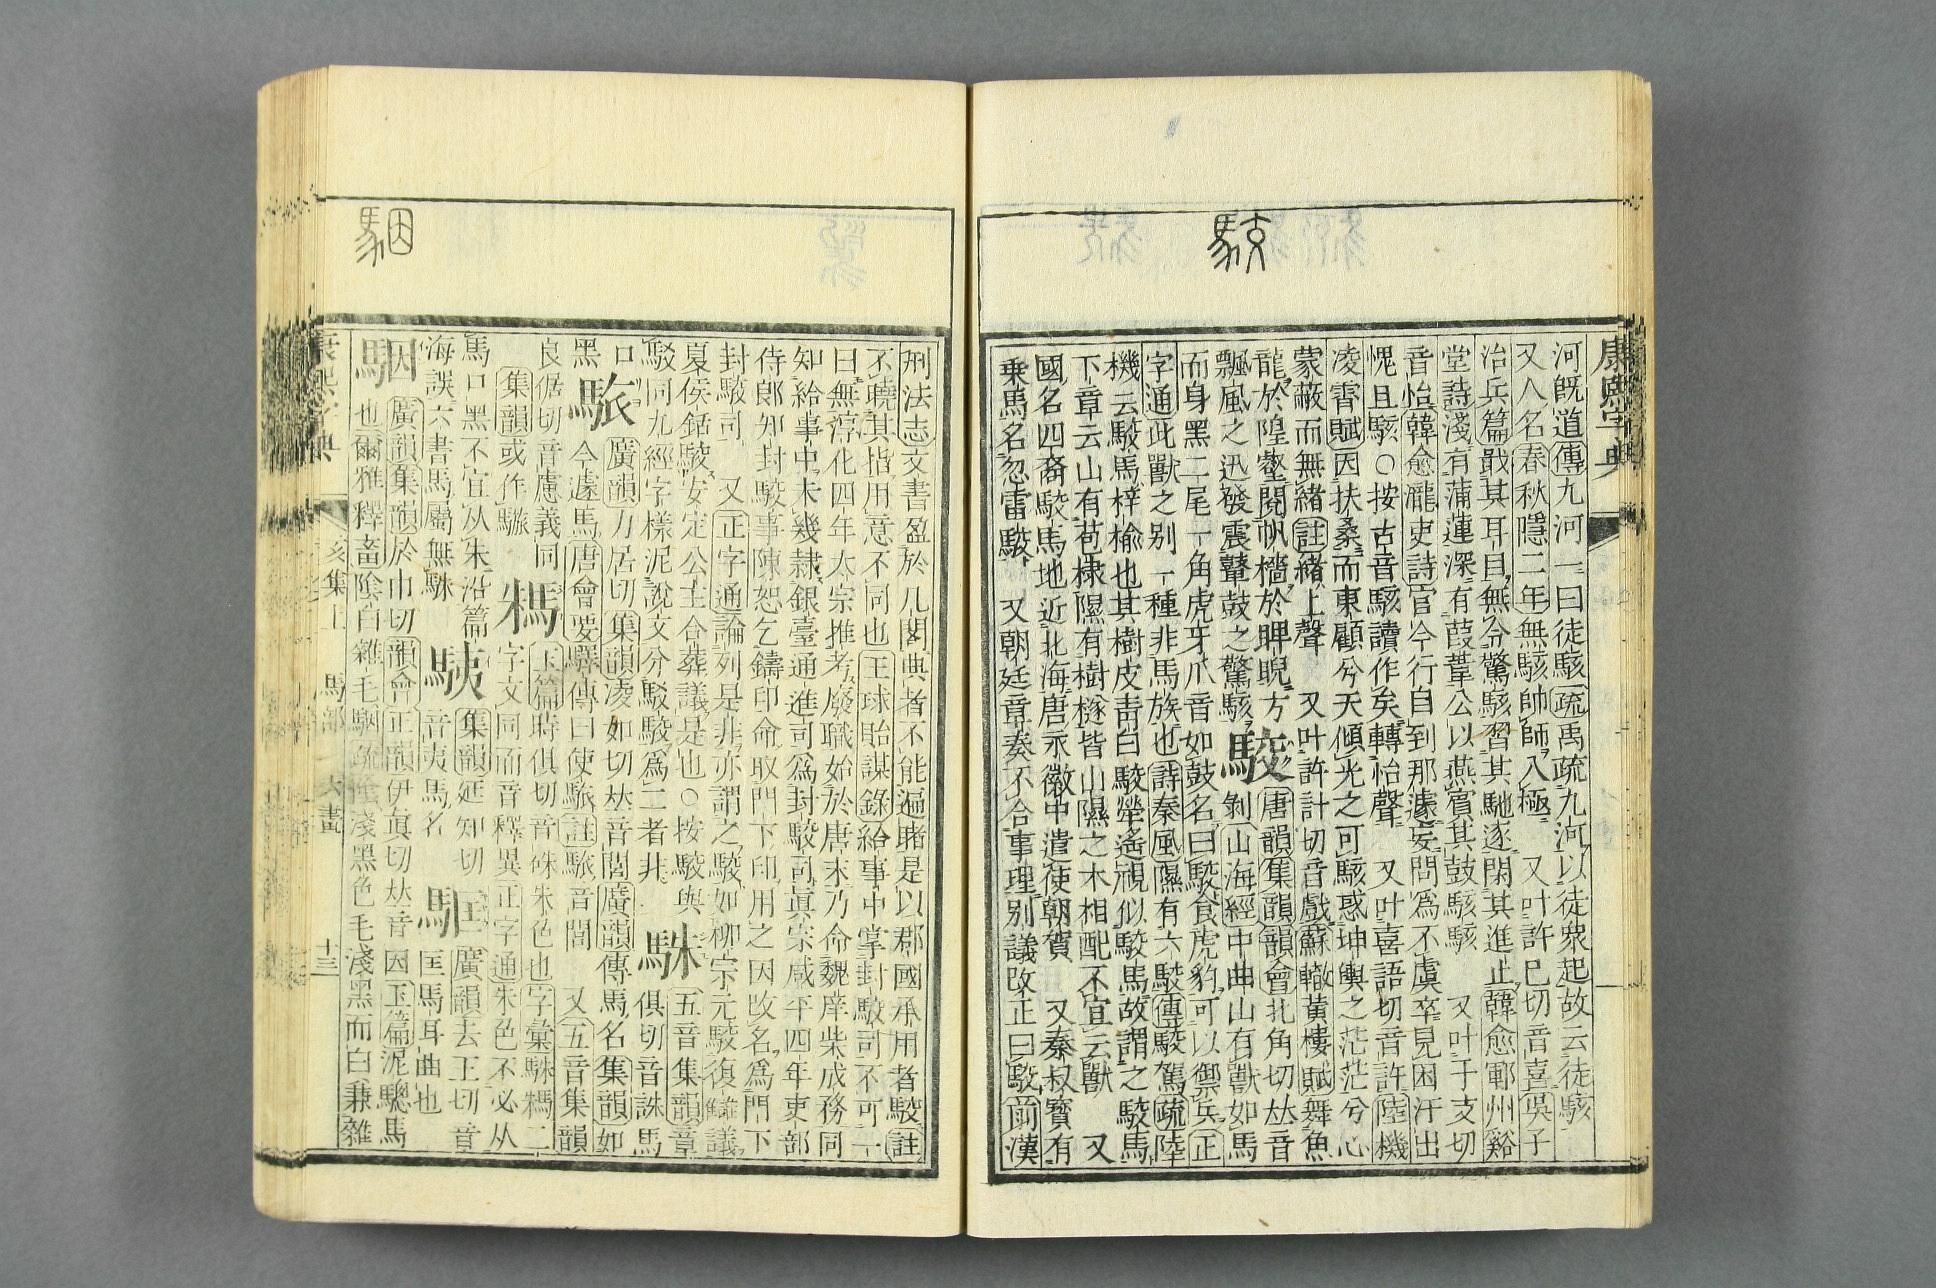 駭
康熙字典
河既道傳九河一曰徒駭疏禹疏九河以徒衆起故云徒駭
又人名春秋隱二年無駭帥師入極 又叶許已切音喜吳子
治兵篇戢其耳目無令驚駭習其馳逐閑其進止韓愈鄆州谿
堂詩淺有蒲蓮深有葭葦公以燕賓其鼓駭駭 又叶于支切
音怡韓愈瀧吏詩官今行自到那遽妄問爲不虞卒見困汗出
愧且駭○按古音駭讀作矣轉怡聲 又叶喜語切音許陸機
凌霄賦因扶桑而東顧兮天傾光之可駭惑坤輿之茫茫兮心
蒙蔽而無緒註緒上聲 又叶許計切音戲蘇轍黃樓賦舞魚
龍於隍壑閱帆檣於睥睨方
飄風之迅發震鼙鼓之驚駭 駮 唐韻集韻韻會北角切𠀤音
剝山海經中曲山有獸如馬
而身黑二尾一角虎牙爪音如鼓名曰駮食虎豹可以禦兵正
字通此獸之別一種非馬族也詩秦風隰有六駮傳駮駕疏陸
機云駮馬梓楡也其樹皮靑白駮犖遙視似駮馬故謂之駮馬
下章云山有苞棣隰有樹檖皆山隰之木相配不宜云獸 又
國名四裔駮馬地近北海唐永徽中遣使朝賀 又秦叔寶有
乗馬名忽雷駮 又朝廷章奏不合事理別議改正曰駮前漢
駰
刑法志文書盈於几閣典者不能遍睹是以郡國承用者駮註
不曉其指用意不同也王球貽謀錄給事中掌封駮司不可一
日無淳化四年太宗推考廢職始於唐末乃命魏庠柴成務同
知給事中未幾隷銀臺通進司爲封駮司眞宗咸平四年吏部
侍郎知封駮事陳恕乞鑄印命取門下印用之因改名爲門下
封駮司 又正字通論列是非亦謂之駮如柳宗元駮復讎議
夏侯銛駮安定公主合葬議是也○按駮與
駁同九經字樣泥說文分駁駮爲二者非 䮏 五音集韻章
俱切音誅馬
口
黑 䮫 廣韻力居切集韻凌如切𠀤音閭廣韻傳馬名集韻如
今遽馬唐會要驛傳曰使䮫註䮫音閭 又五音集韻
良倨切音慮義同
集韻或作驢 䮒 字文 玉篇時俱切音殊朱色也字彙䮏䮒二
同而音釋異正字通朱色不必从
馬口黑不宜从朱沿篇
海誤六書馬屬無䮏 䮊 集韻延知切
音夷馬名 䮑 廣韻去王切音
匡馬耳曲也
駰 廣韻集韻於巾切韻會正韻伊眞切𠀤音因玉篇泥驄馬
也爾雅釋畜隂白雜毛駰疏隂淺黑色毛淺黑而白兼雜
康熙字典 亥集上 馬部 六畫 十三